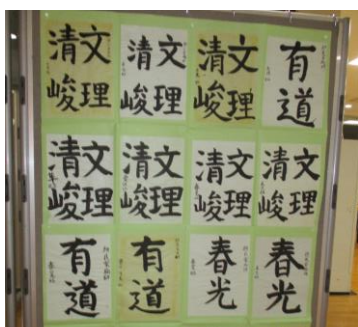 文理
清峻
文理
清峻
文理
清峻
有道
文理
清峻
文理
清峻
文理
清峻
文理
清峻
有道
有道
春光
春光